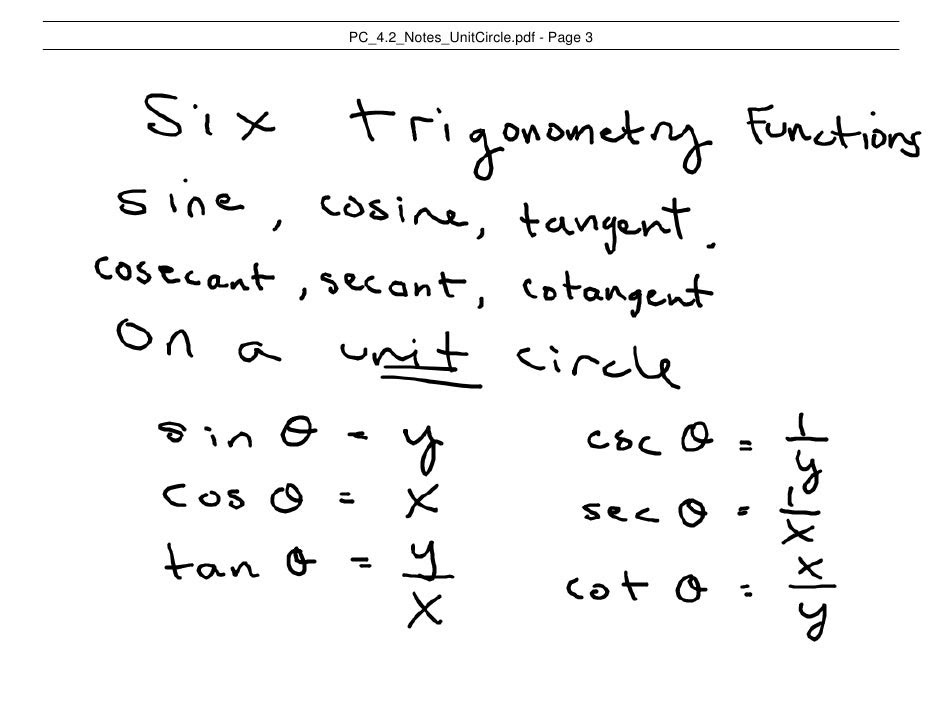 PC_4.2_Notes_UnitCircle.pdf - Page 3
Six trigonometry Functions
sine, cosine, tangent.
cosecant, secant, cotangent
On a unit circle
sin θ = y
csc θ = 1/y
cos θ = x
sec θ = 1/x
tan θ = y/x
cot θ = x/y